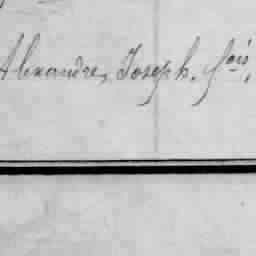 Alexandre, Joseph, fois,